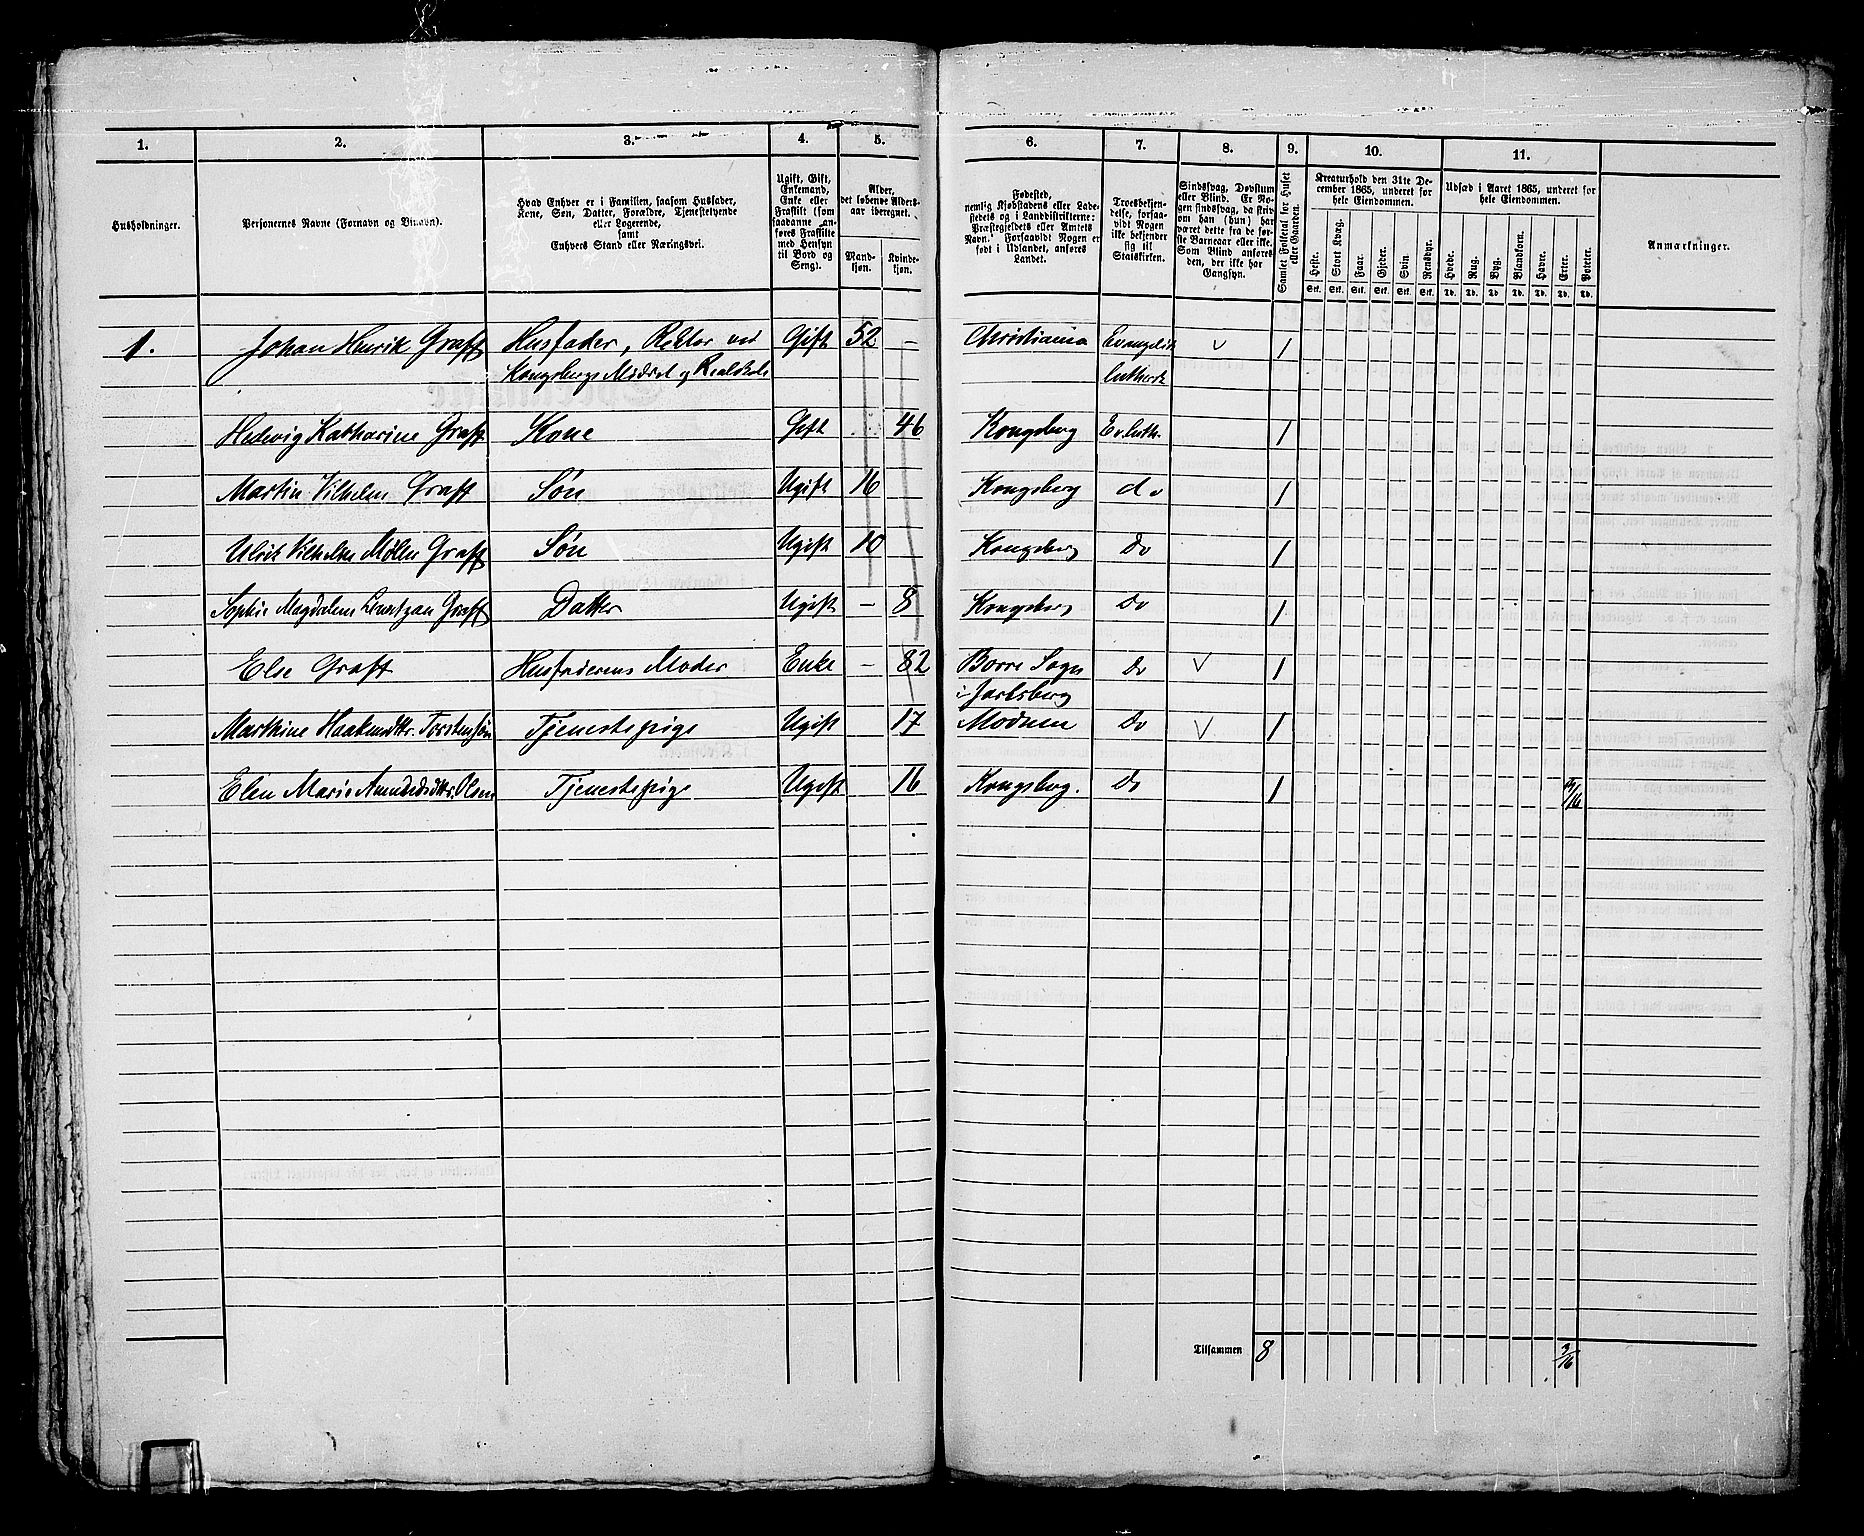 1. 2. 3. 4. 5. 6. 7. 8. 9. 10. 11.
Husholdninger.
Personernes Navne (Fornavn og Binavn).
Hvad Enhver er i Familien, saasom Husfader,
Kone, Søn, Datter, Forældre, Tjenestetyende
eller Logerende,
samt
Enhvers Stand eller Næringsvei.
Ugift, Gift,
Enkemand,
Enke eller
Fraskilt (som
saadanne an-
føres Fraskilte
med Hensyn
til Bord og
Seng).
Alder,
det løbende Alders-
aar iberegnet.
Mand-
kjøn.
Kvinde-
kjøn.
Fødested,
nemlig Kjøbstadens eller Lade-
stedets og i Landdistrikterne:
Præstegjeldets eller Amtets
Navn. Forsaavidt Nogen er
født i Udlandet, anføres
Landet.
Troesbekjen-
delse, forsaa-
vidt Nogen
ikke bekjender
sig til
Statskirken.
Sindssvag, Døvstum
eller Blind. Er No-
gen sindssvag, da skriv
om han (hun) har
været dette fra de før-
ste Barneaar eller ikke.
Som Blind anføres
den, der ikke har
Gangsyn.
Samlet Folketal for Huset
eller Gaarden.
Kreaturhold den 31te De-
cember 1865, underet for
hele Eiendommen.
Heste. Stort Kvæg. Faar. Gjeder. Svin. Rensdyr.
Stk. Stk. Stk. Stk. Stk. Stk.
Udsæd i Aaret 1865, underet for
hele Eiendommen.
Hvede. Rug. Byg. Blandkorn. Havre. Erter. Poteter.
Td. Td. Td. Td. Td. Td. Td.
Anmærkninger.
1. Johan Henrik Graff Husfader, Rektor ved Gift 52 – Christiania Evangelisk 1
Kongsbergs Middel og Realskole luthersk
Hedevig Katharine Graff Kone Gift 46 Kongsberg Ev.luth. 1
Martin Vilhelm Graff Søn Ugift 16 Kongsberg do 1
Ulrik Vilhelm Møller Graff Søn Ugift 10 Kongsberg Do 1
Sophie Magdalene Graff Datter Ugift – 8 Kongsberg Do 1
Else Graff Husfaderens Moder Enke – 82 Borre Sogn Do 1
i Jarlsberg
Marthine Torstensøn Tjenestepige Ugift 17 Modum Do 1
Elen Marie Olsen Tjenestepige Ugift 16 Kongsberg. Do 1
Tilsammen 8